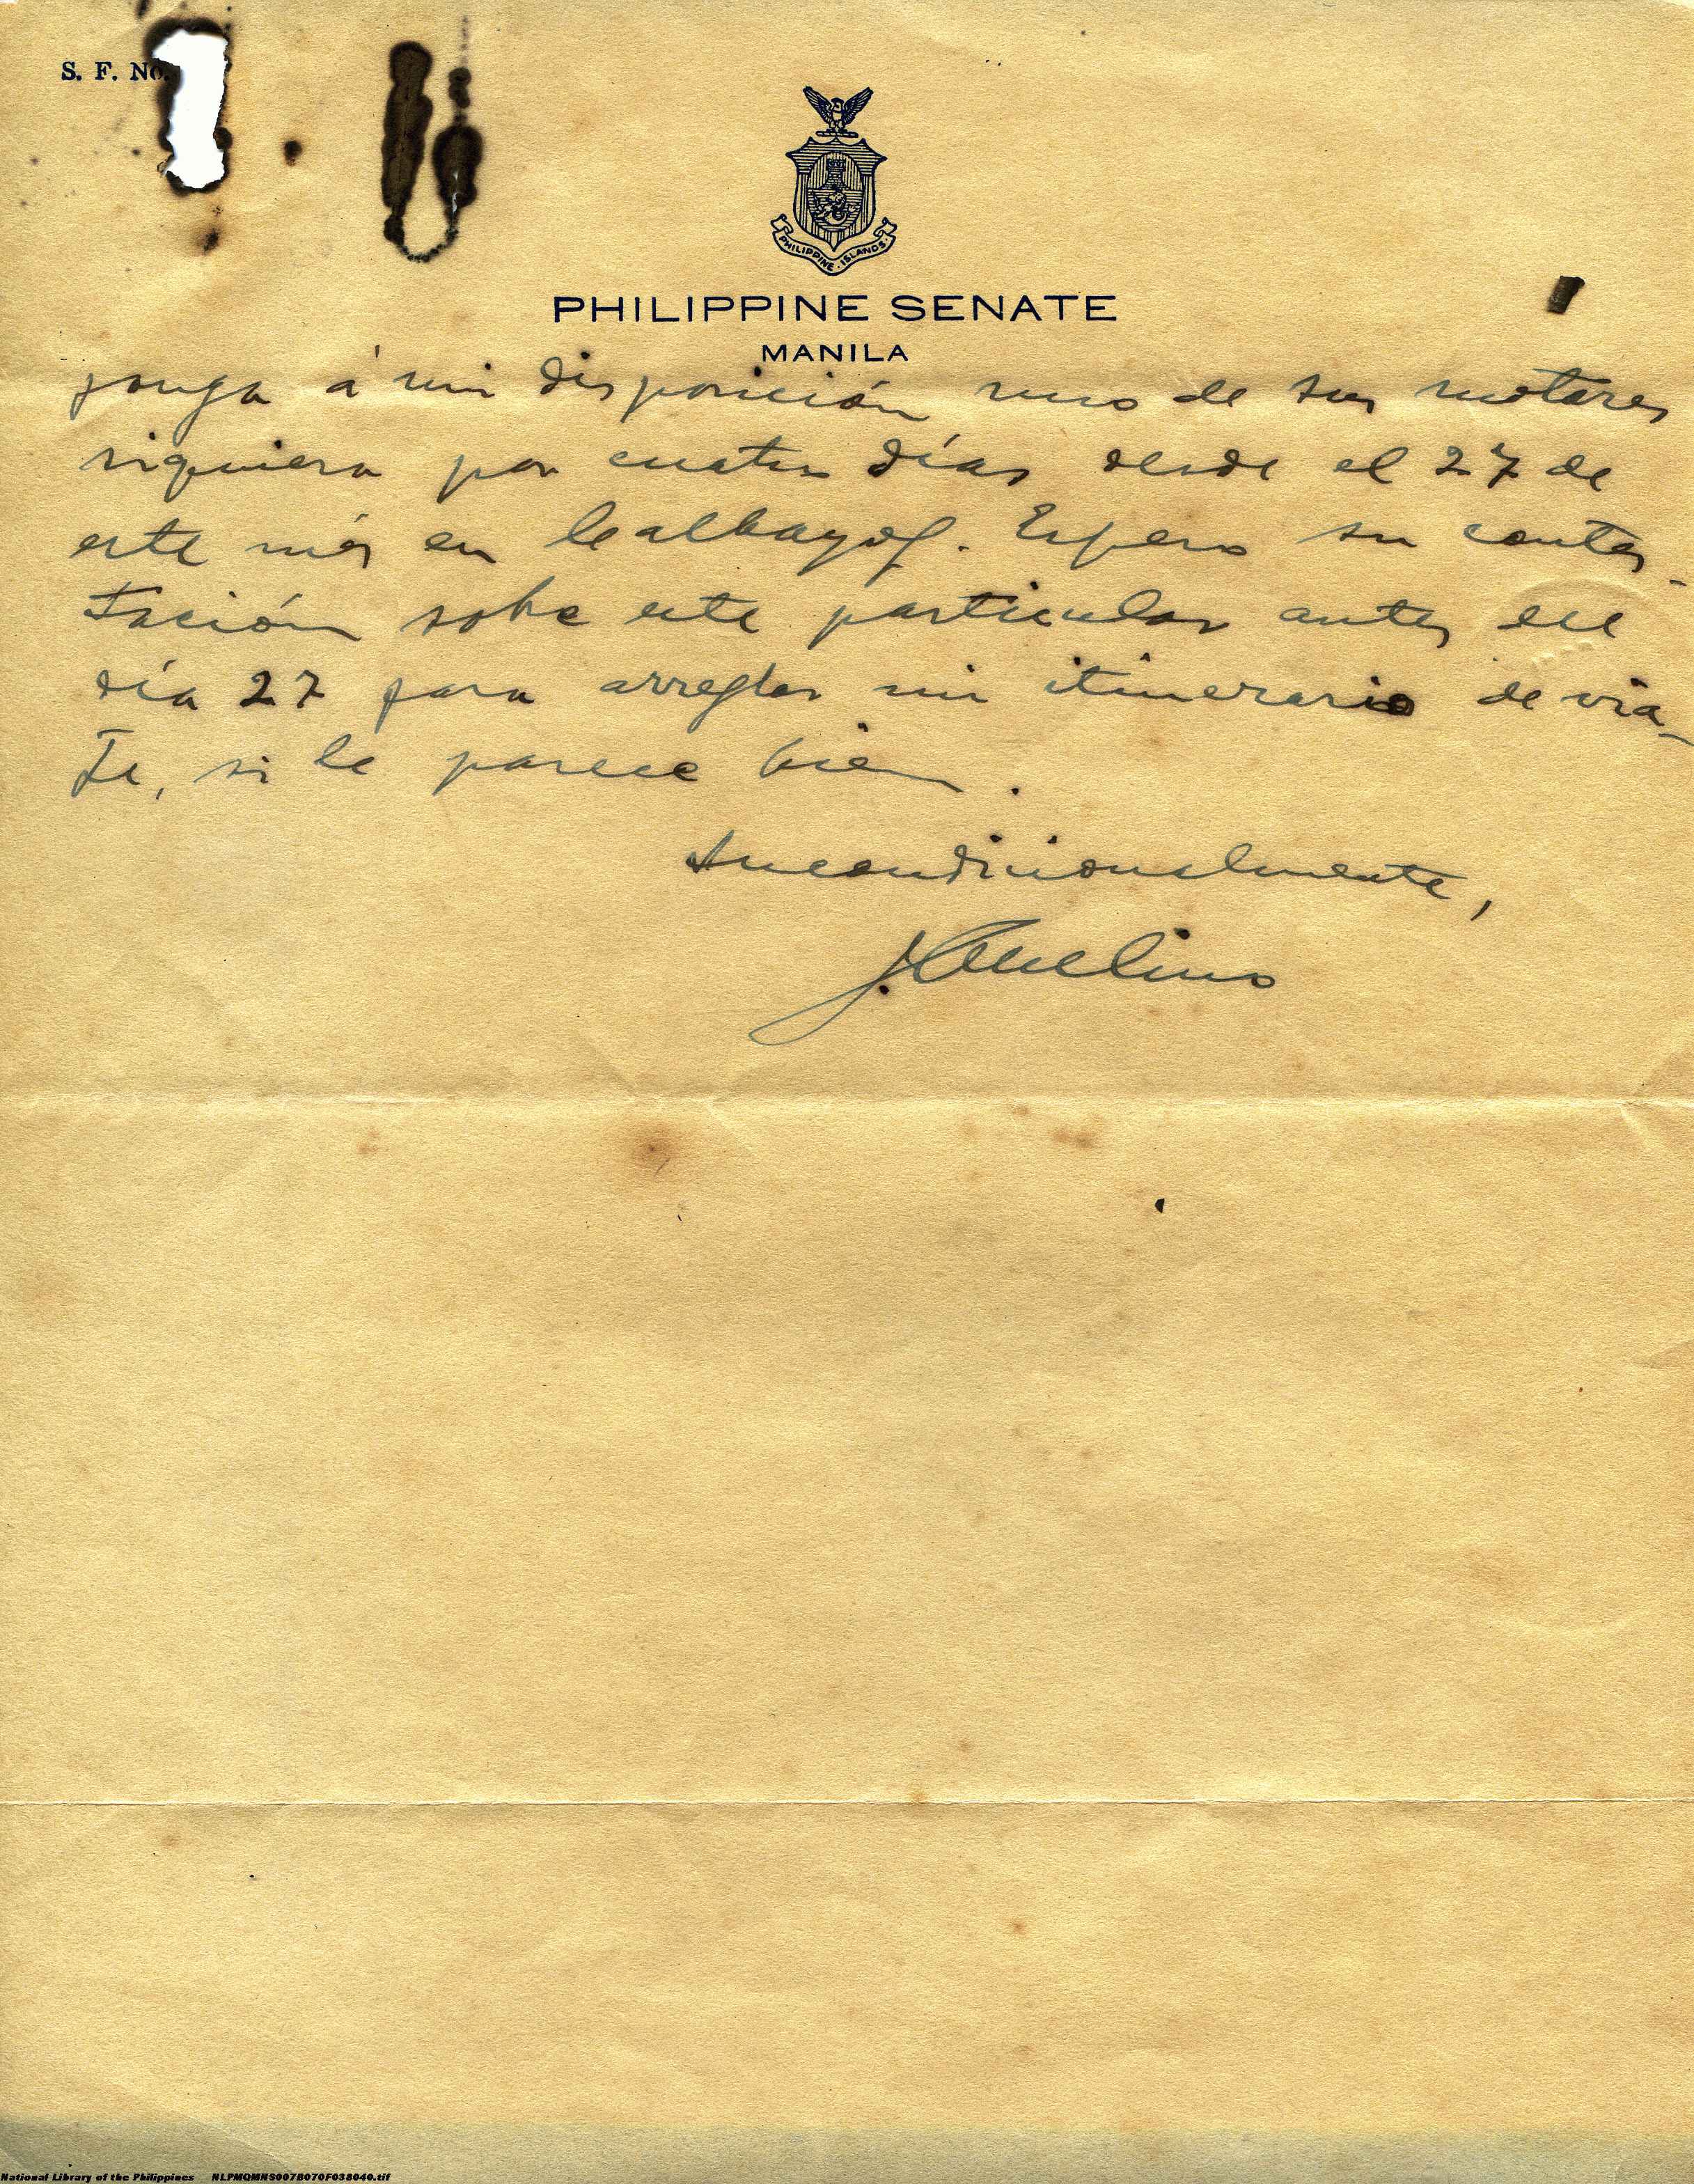 S. F. No.
PHILIPPINE ISLANDS
PHILIPPINE SENATE
MANILA
ponga á mi disposición uno de sus motores
siquiera por cuatro días desde el 27 de
este mes en Calbayog. Espero su contes-
tación sobre este particular antes del
día 27 para arreglar mi itinerario de via-
je, si le parece bien.
Incondicionalmente,
J. Avelino
National Library of the Philippines NLPMQMNS007B070F038040.tif